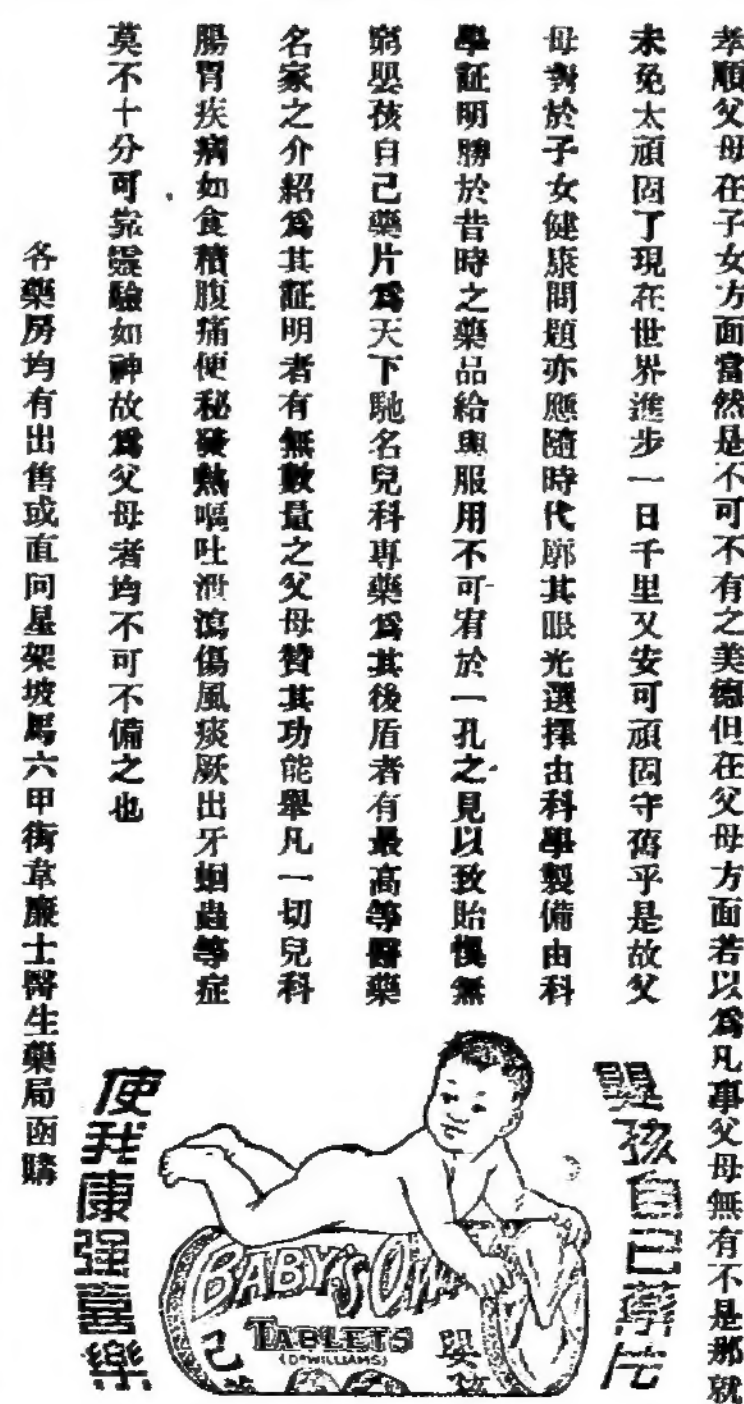 孝順父母在子女方面當然是不可不有之美德但在父母方面若以爲凡事父母無有不是那就
未免太頑固了現在世界進步一日千里又安可頑固守舊乎是故父
母對於子女健康問題亦應隨時代廓其眼光選擇由科學製備由科
學証明勝於昔時之藥品給與服用不可宥於一孔之見以致貽悞無
窮嬰孩自己藥片爲天下馳名兒科專藥爲其後盾者有最高等醫藥
名家之介紹爲其証明者有無數量之父母贊其功能舉凡一切兒科
腸胃疾病如食積腹痛便秘發熱嘔吐泄瀉傷風痰厥出牙蛔蟲等症
莫不十分可靠靈驗如神故爲父母者均不可不備之也
各藥房均有出售或直向星架坡馬六甲街韋廉士醫生藥局函購
嬰孩自己藥片
使我康强喜樂
BABY'S OWN
TABLETS
(DR WILLIAMS)
嬰孩
己